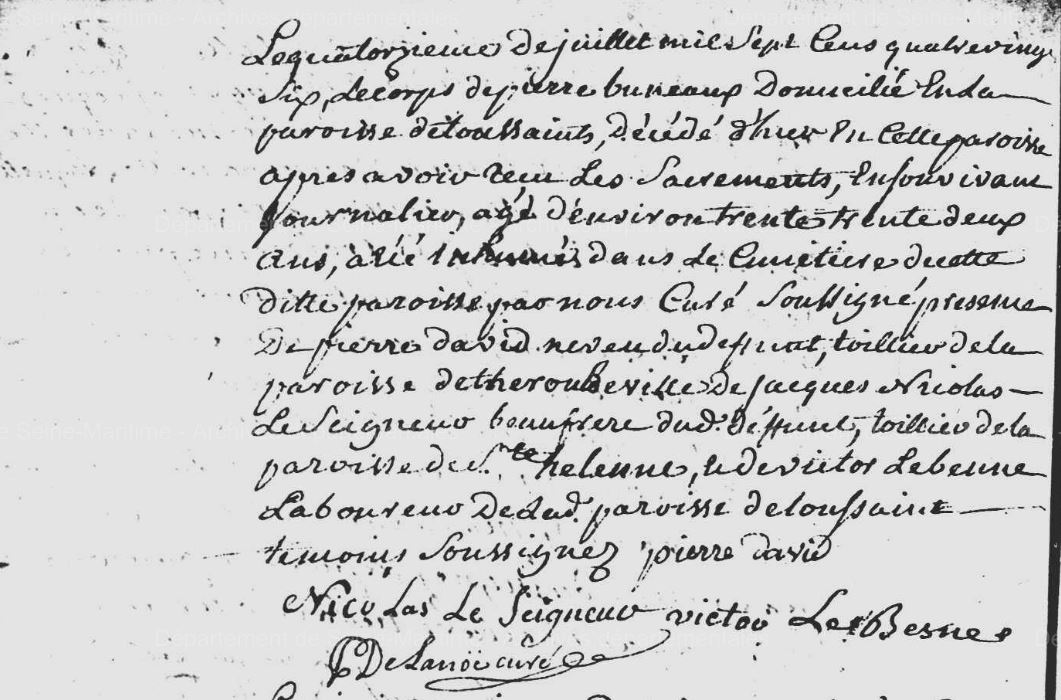 Lequatorzieme de juillet mil sept Cens quatrevingt
Six, Le corps de pierre buneaux Domicilié En La
paroisse de toussaints, Décédé d'hier En Cette paroisse
apres avoir reçu Les Sacrements, En son vivant
journalier, agé d'environ trente trente deux
ans, a été inhumés dans Le Cimetiere de cette
ditte paroisse par nous Curé Soussigné presence
De pierre david neveu du deffunt, toillier de la
paroisse de therouldeville De Jacques Nicolas
Le Seigneur beaufrere dud. deffunt, toillier de la
paroisse de Ste helenne, et de victor Lebenne
Laboureur De Lad. paroisse de toussaint
temoins Soussignez pierre david
Nicolas Le Seigneur victor Le Besne
De Lanoë curé